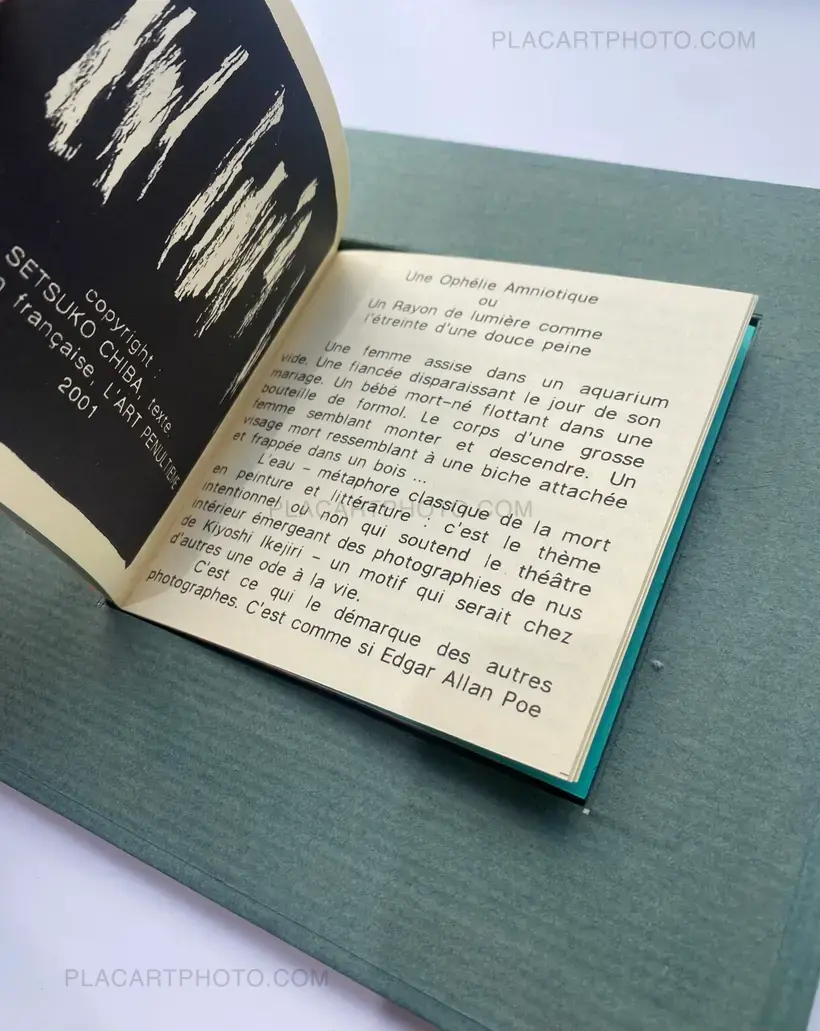 PLACARTPHOTO.COM
copyright :
SETSUKO CHIBA, texte.
française, L'ART PENULTIEME
2001
Une Ophélie Amniotique
ou
Un Rayon de lumière comme
l'étreinte d'une douce peine
Une femme assise dans un aquarium
vide. Une fiancée disparaissant le jour de son
mariage. Un bébé mort-né flottant dans une
bouteille de formol. Le corps d'une grosse
femme semblant monter et descendre. Un
visage mort ressemblant à une biche attachée
et frappée dans un bois ...
L'eau – métaphore classique de la mort
en peinture et littérature : c'est le thème
intentionnel ou non qui soutend le théâtre
intérieur émergeant des photographies de nus
de Kiyoshi Ikejiri – un motif qui serait chez
d'autres une ode à la vie.
C'est ce qui le démarque des autres
photographes. C'est comme si Edgar Allan Poe
PLACARTPHOTO.COM
PLACARTPHOTO.COM